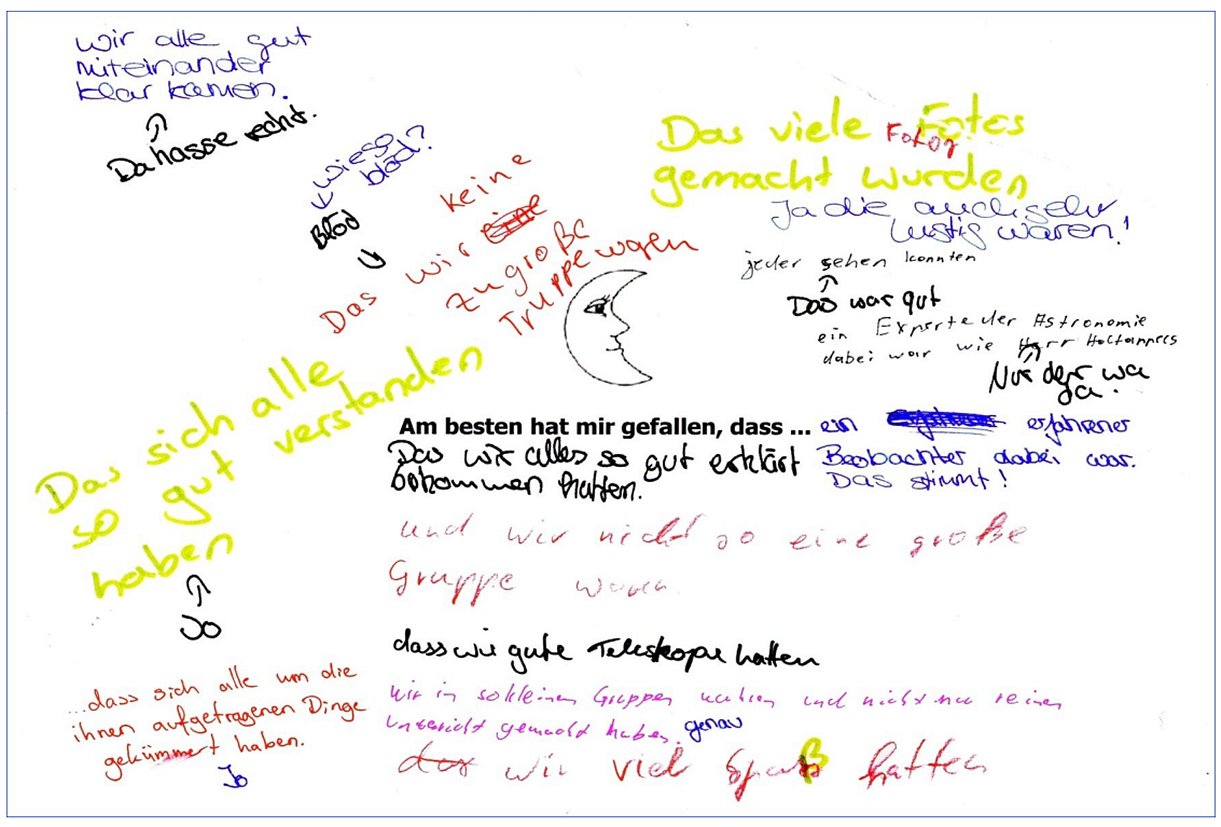 wir alle gut
miteinander
klar kamen.
Da hasse recht.
wieso
blöd?
Blöd
keine
Das wir eine
zu große
Truppe waren
Das viele Fotos
Fotos
gemacht wurden
Ja die auch sehr
lustig waren!
jeder sehen konnten
Das war gut
ein Experte der Astronomie
dabei war wie Herr
Nur der wa
da.
Das sich alle
so gut verstanden
haben
Jo
Am besten hat mir gefallen, dass ...
ein erfahrener
Beobachter dabei war.
Das stimmt!
Das wir alles so gut erklärt
bekommen hatten.
und wir nicht so eine große
Gruppe waren
dass wir gute Teleskope hatten
...dass sich alle um die
ihnen aufgetragenen Dinge
gekümmert haben.
Jo
wir in so kleinen Gruppen waren und nicht nur reinen
Unterricht gemacht haben. genau
das wir viel Spaß hatten